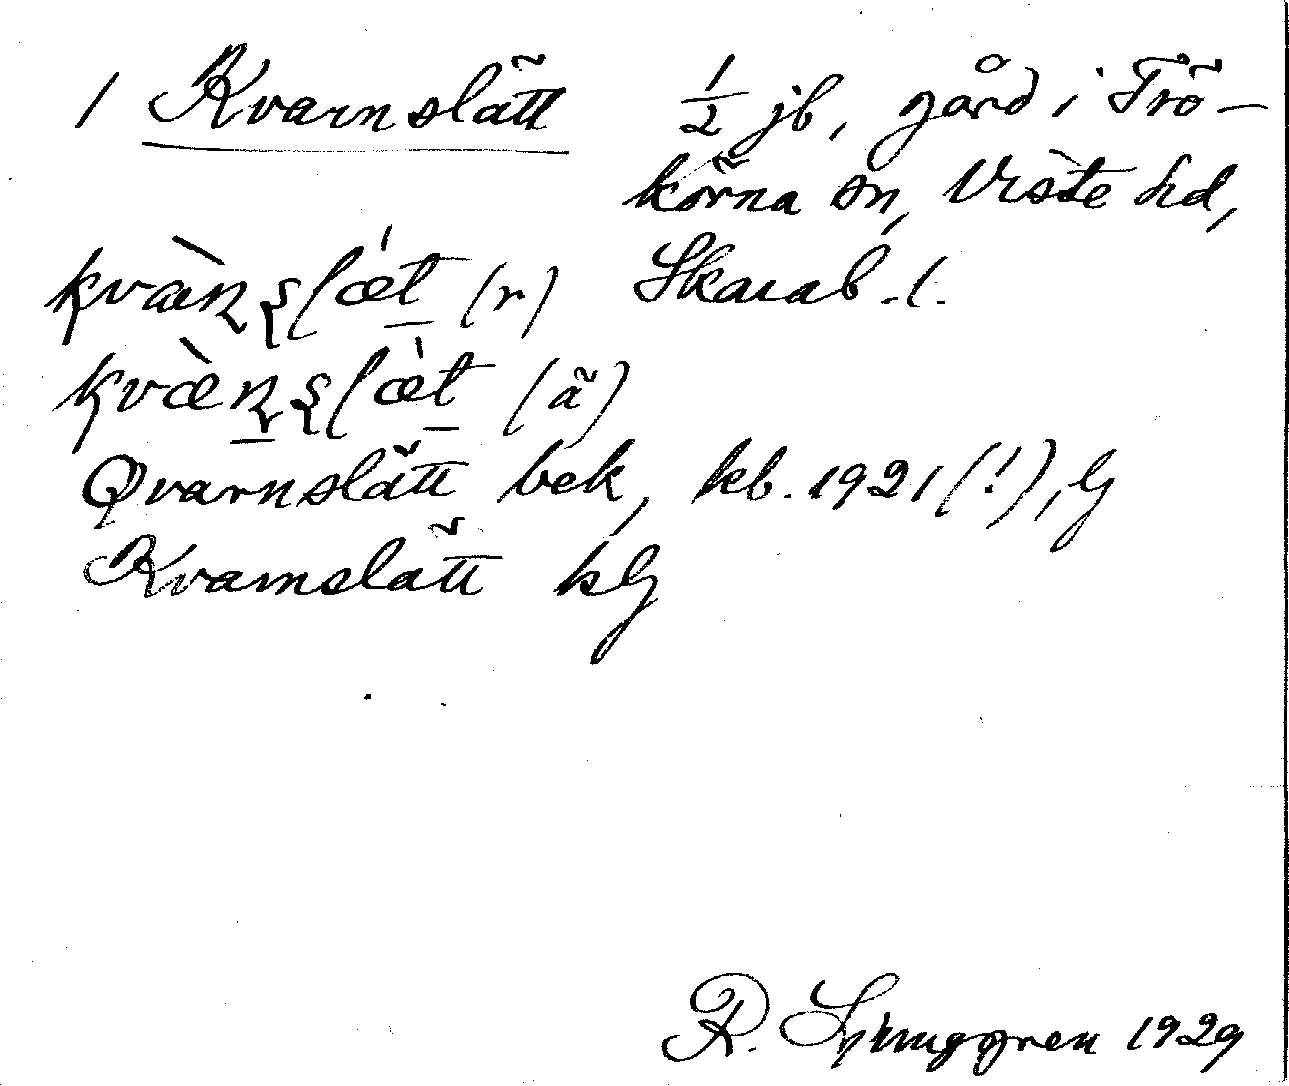 1 Kvarnslätt 1/2 jb, gård i Trö-
körna sn, Viste hd,
Skarab. l.
kvàɳʂlǽt (r)
kvæ̀ɳʂlæ̀t (ä)
Qvarnslätt bek, kb. 1921 (!), G
Kvarnslätt kG
R. Ljunggren 1929